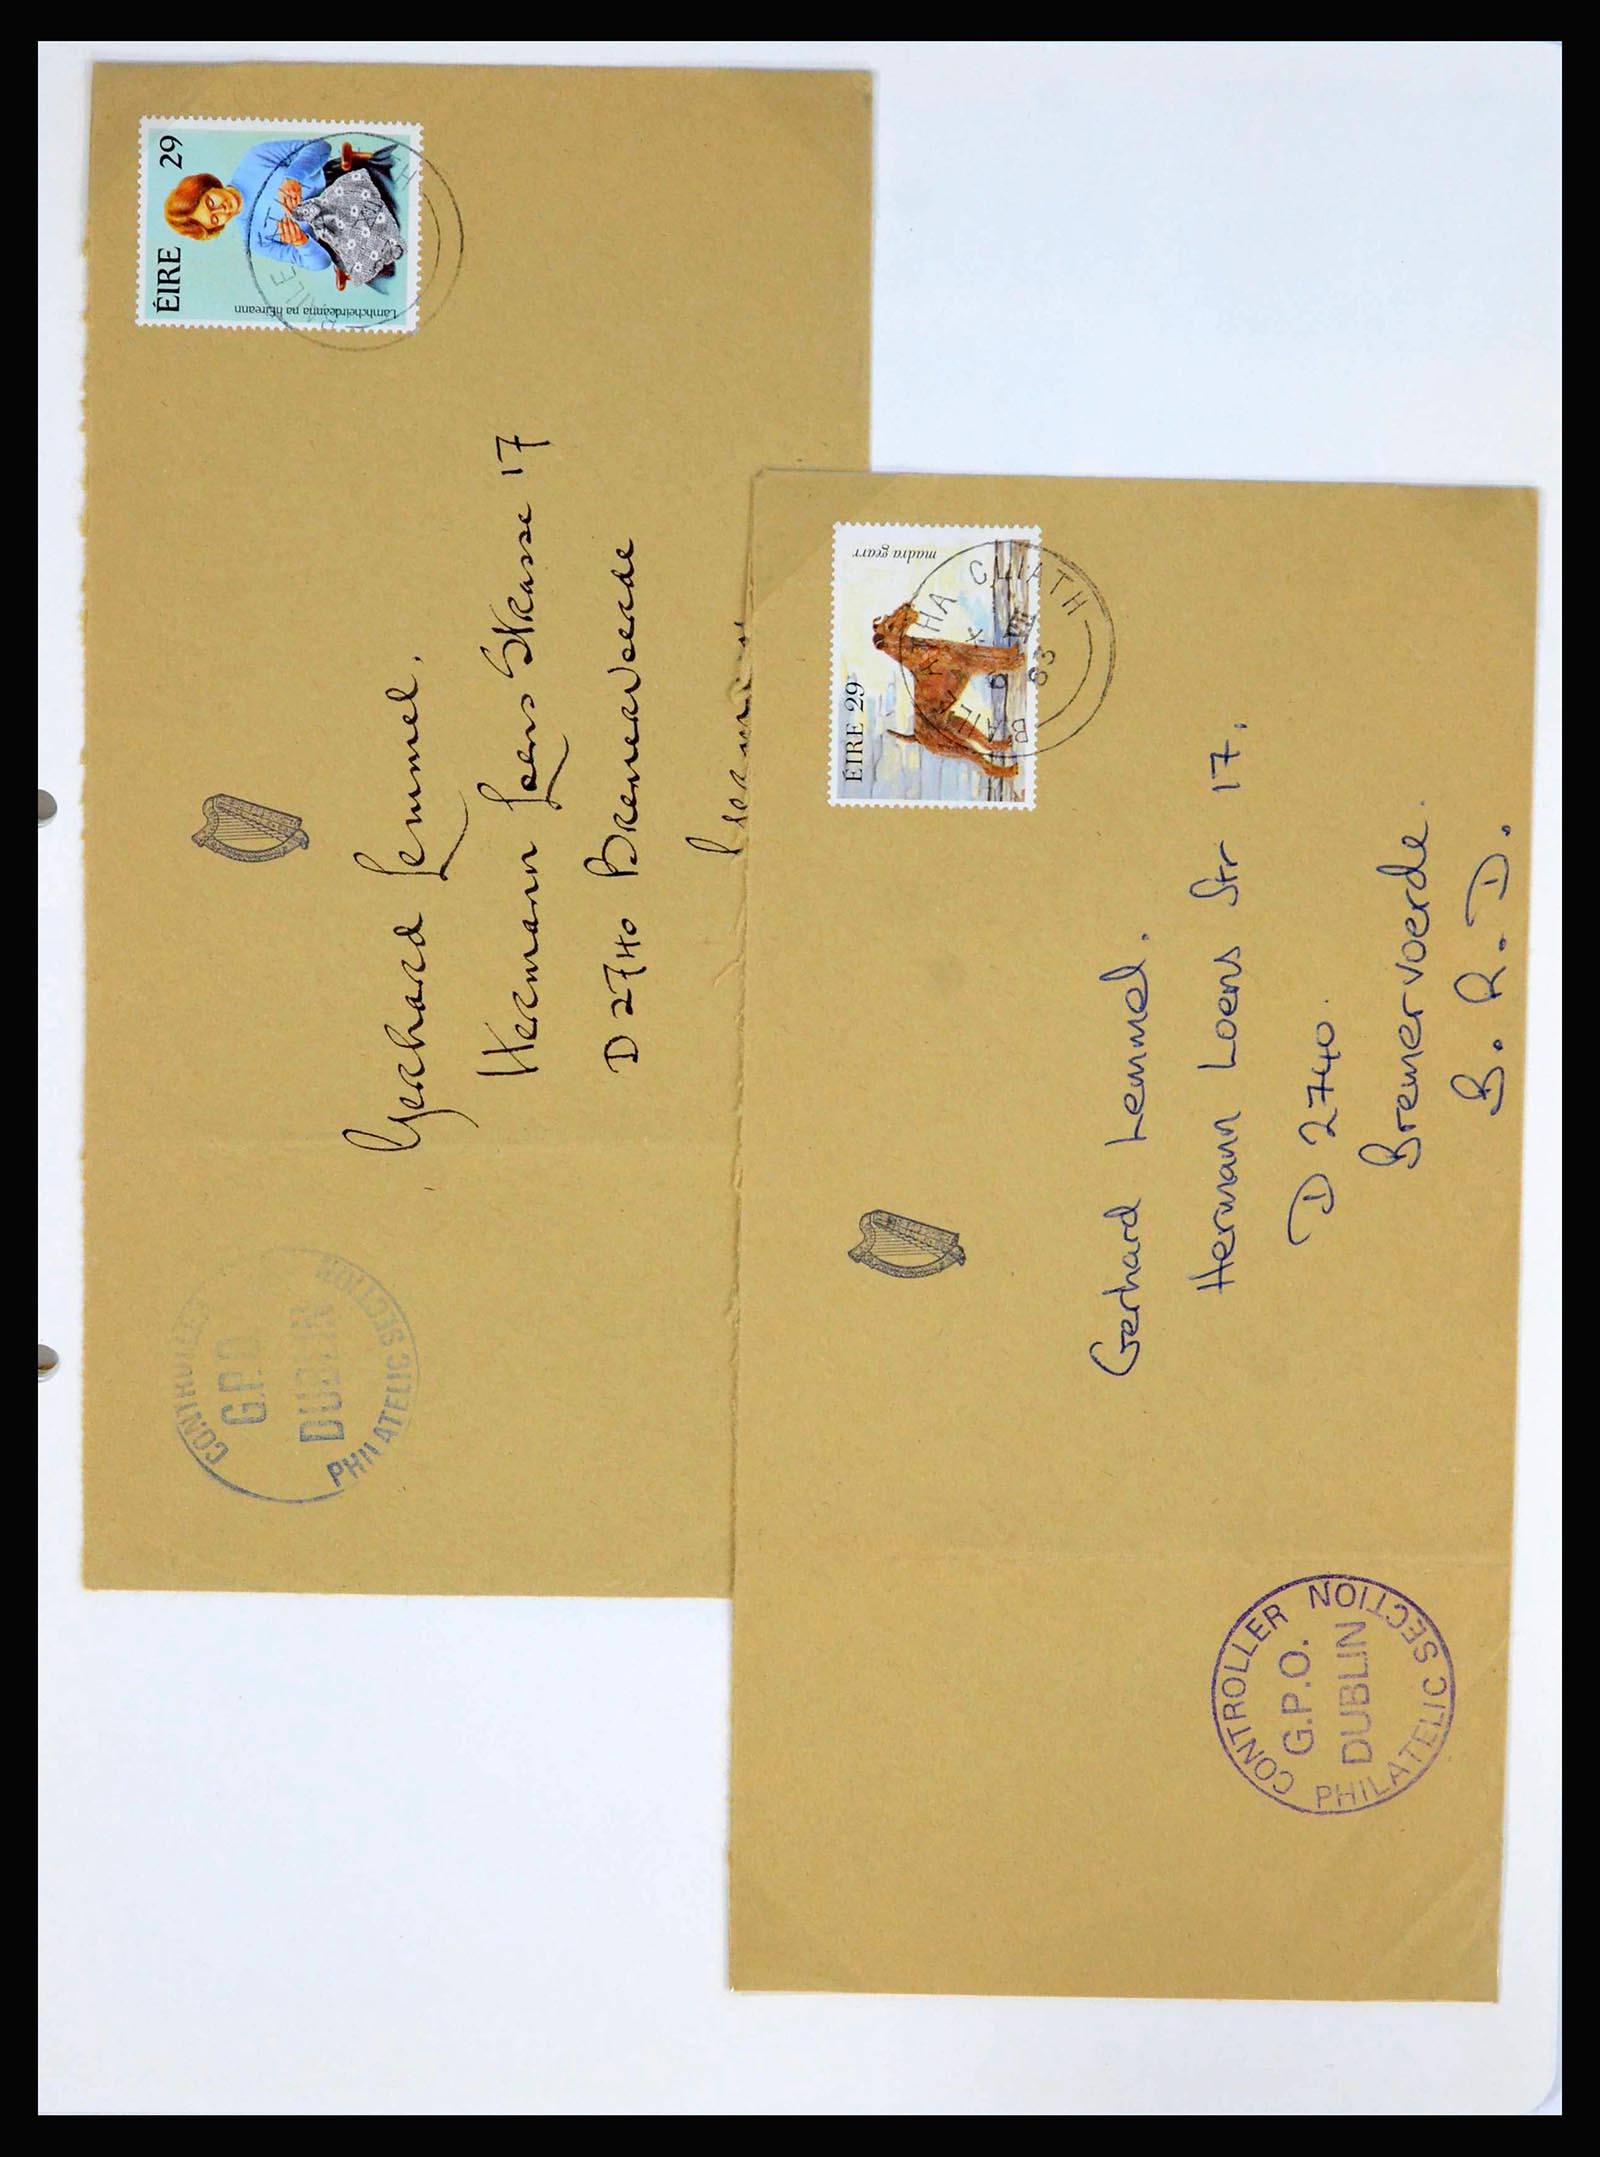 ÉIRE 29
Lámhcheirdeanna na hÉireann
BAILE ÁTHA
XII
Gerhard Lemmel.
Hermann Loens Strasse 17
D 2740 Bremervoerde
CONTROLLER
G.P.O.
DUBLIN
PHILATELIC SECTION
ÉIRE 29
madra gearr
BAILE ÁTHA CLIATH
83
Gerhard Lemmel.
Hermann Loens Str 17.
D 2740.
Bremervoerde.
B. R. D.
CONTROLLER
G.P.O.
DUBLIN
PHILATELIC SECTION